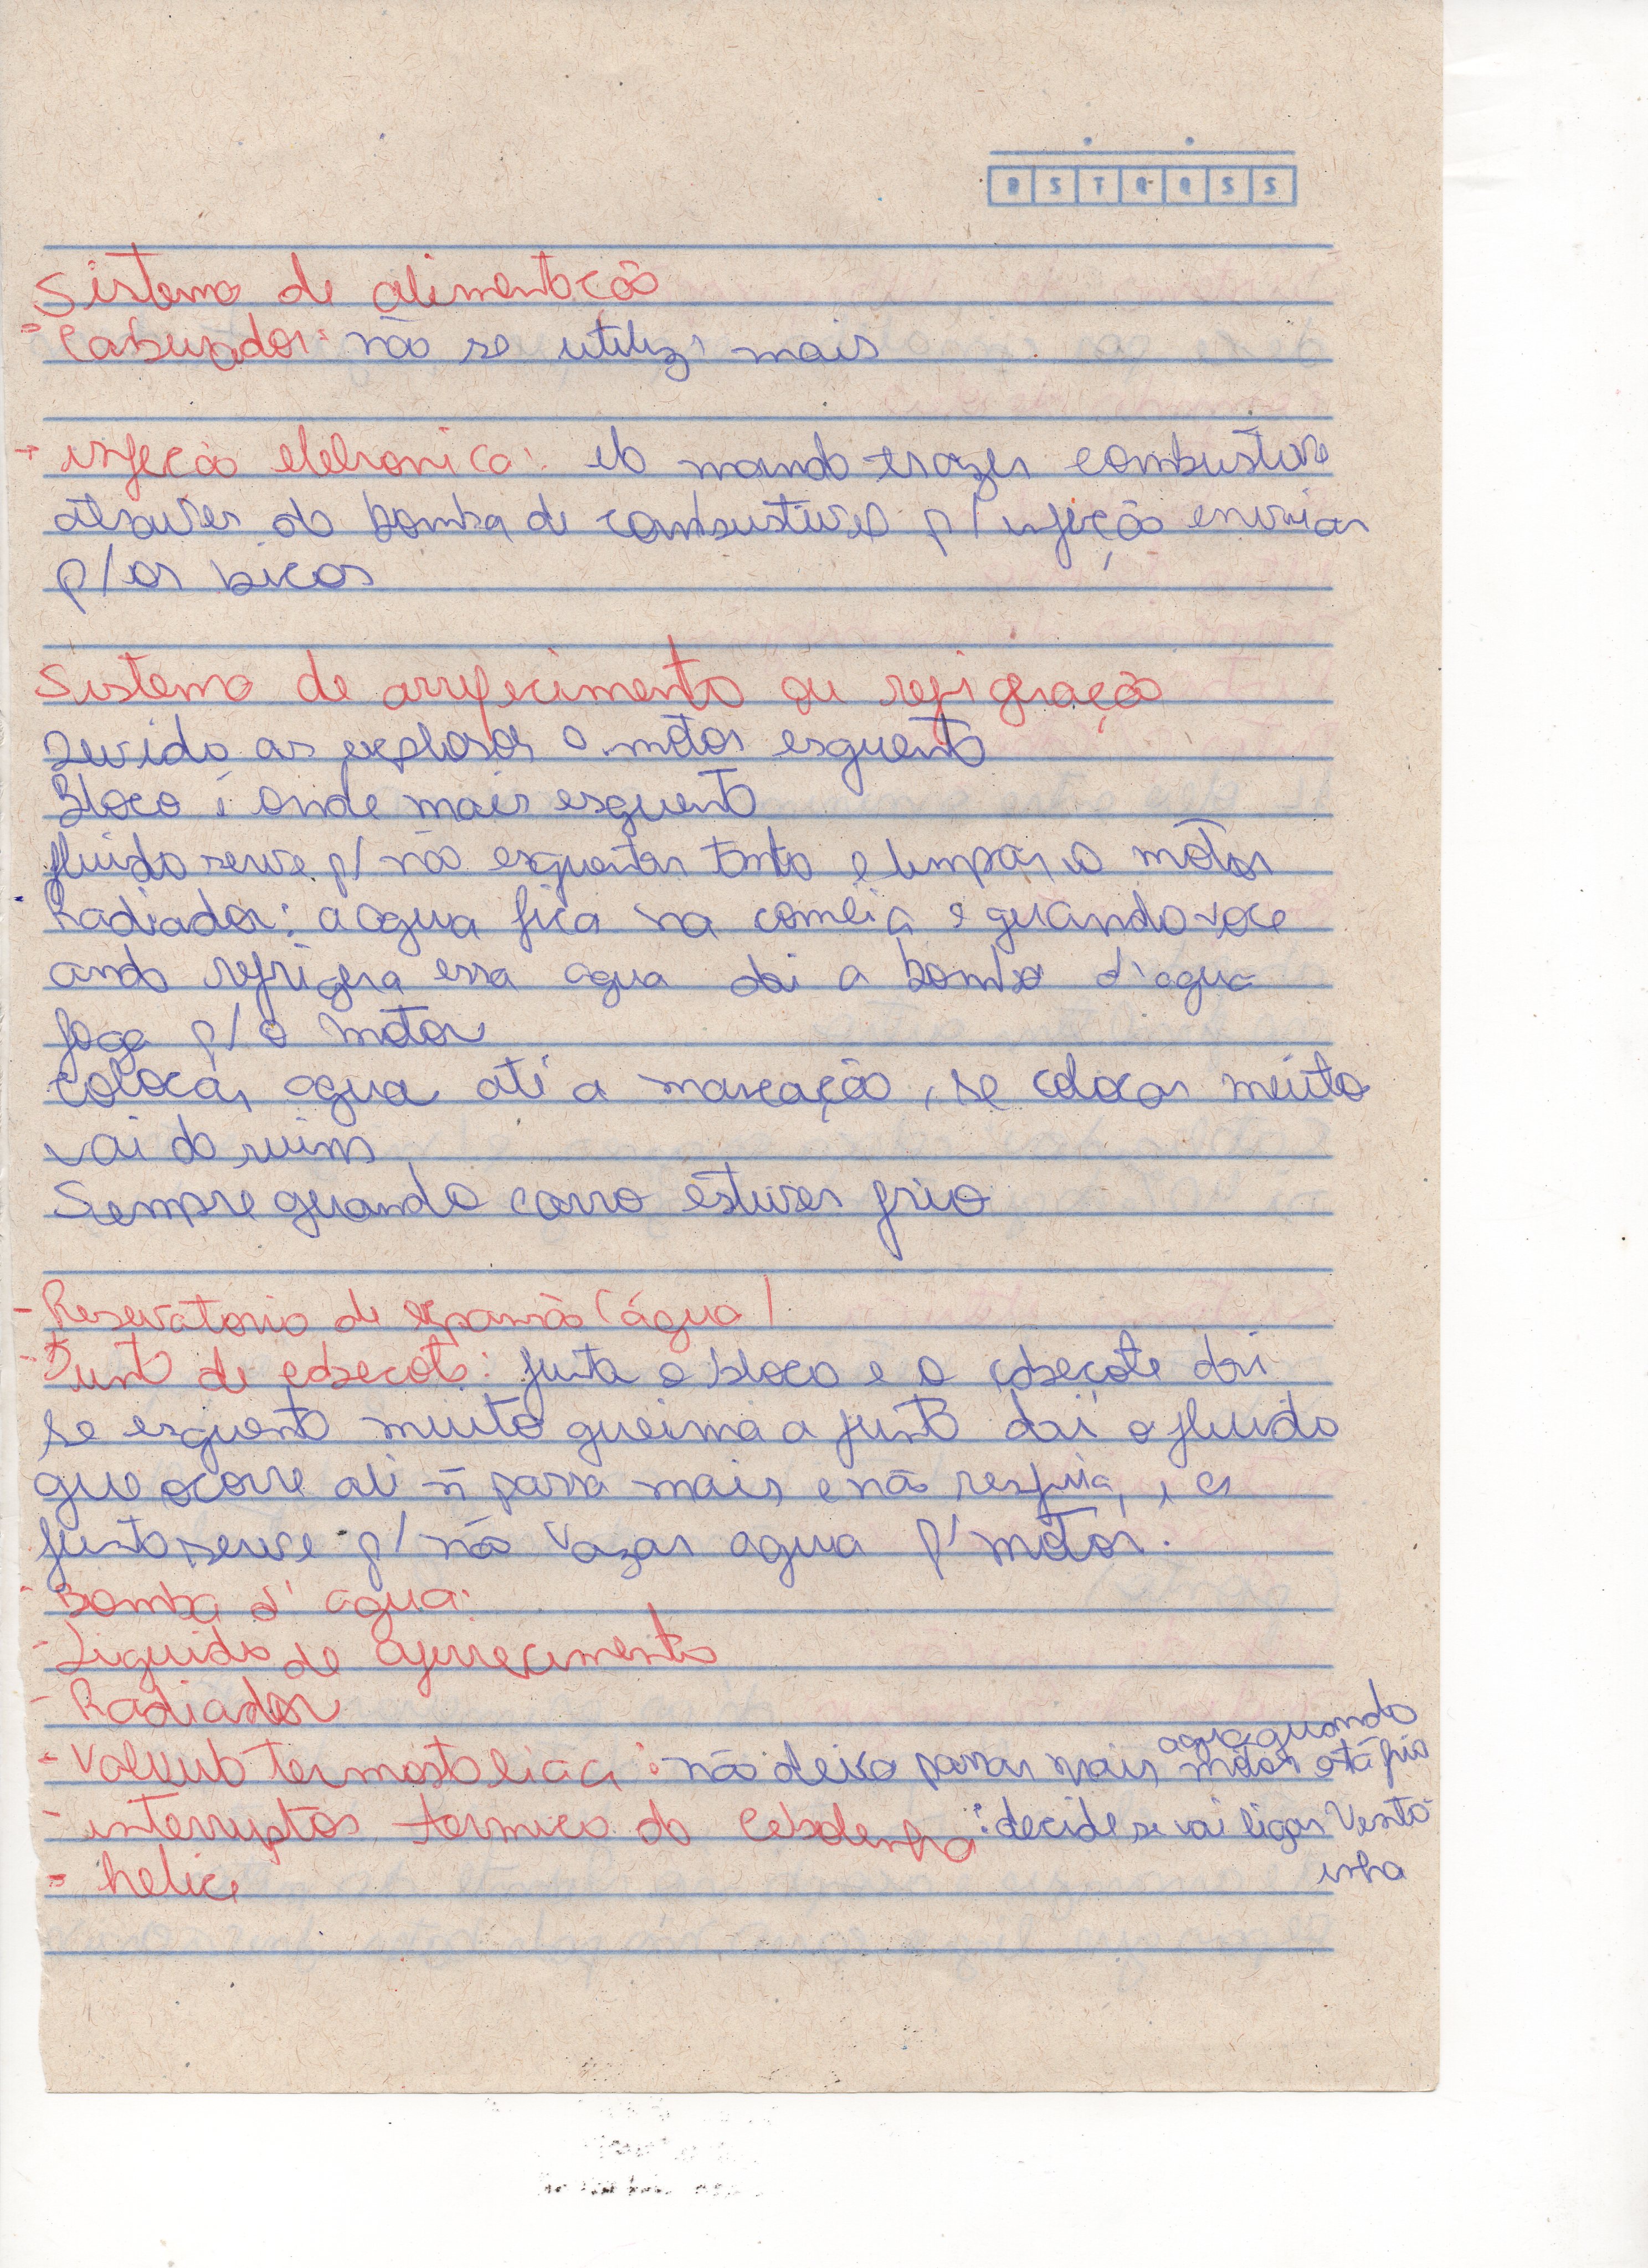 D S T Q Q S S
Sistema de alimentação
- Carburador: não se utiliza mais
- injeção eletronica: ela manda trazer combustivel
atraves da bomba de combustivel p/ injeção enviar
p/ os bicos
Sistema de arrefecimento ou refrigeração
Devido as explosoes o motor esquenta
Bloco é onde mais esquenta
fluido serve p/ não esquentar tanto e limpar o motor
Radiador: a agua fica na comeia e quando voce
anda refrigera essa agua dai a bomba d'agua
joga p/ o motor
colocar agua até a marcação, se colocar muito
vai da ruim
Sempre quando carro estiver frio
- Reservatorio de expansão (água)
- Junta de cabeçote: junta o bloco e o cabeçote dai
se esquenta muito queima a junta daí o fluido
que ocorre ali ñ passa mais e não resfria, e a
junta serve p/ não vazar agua p/ motor.
- Bomba d'agua:
- Liquido de aferrecimento
- Radiador
agua quando
- Valvula termostatica: não deixa passar mais motor está frio
- interruptor termico do cebolinha: decide se vai ligar Vento-
inha
- helice